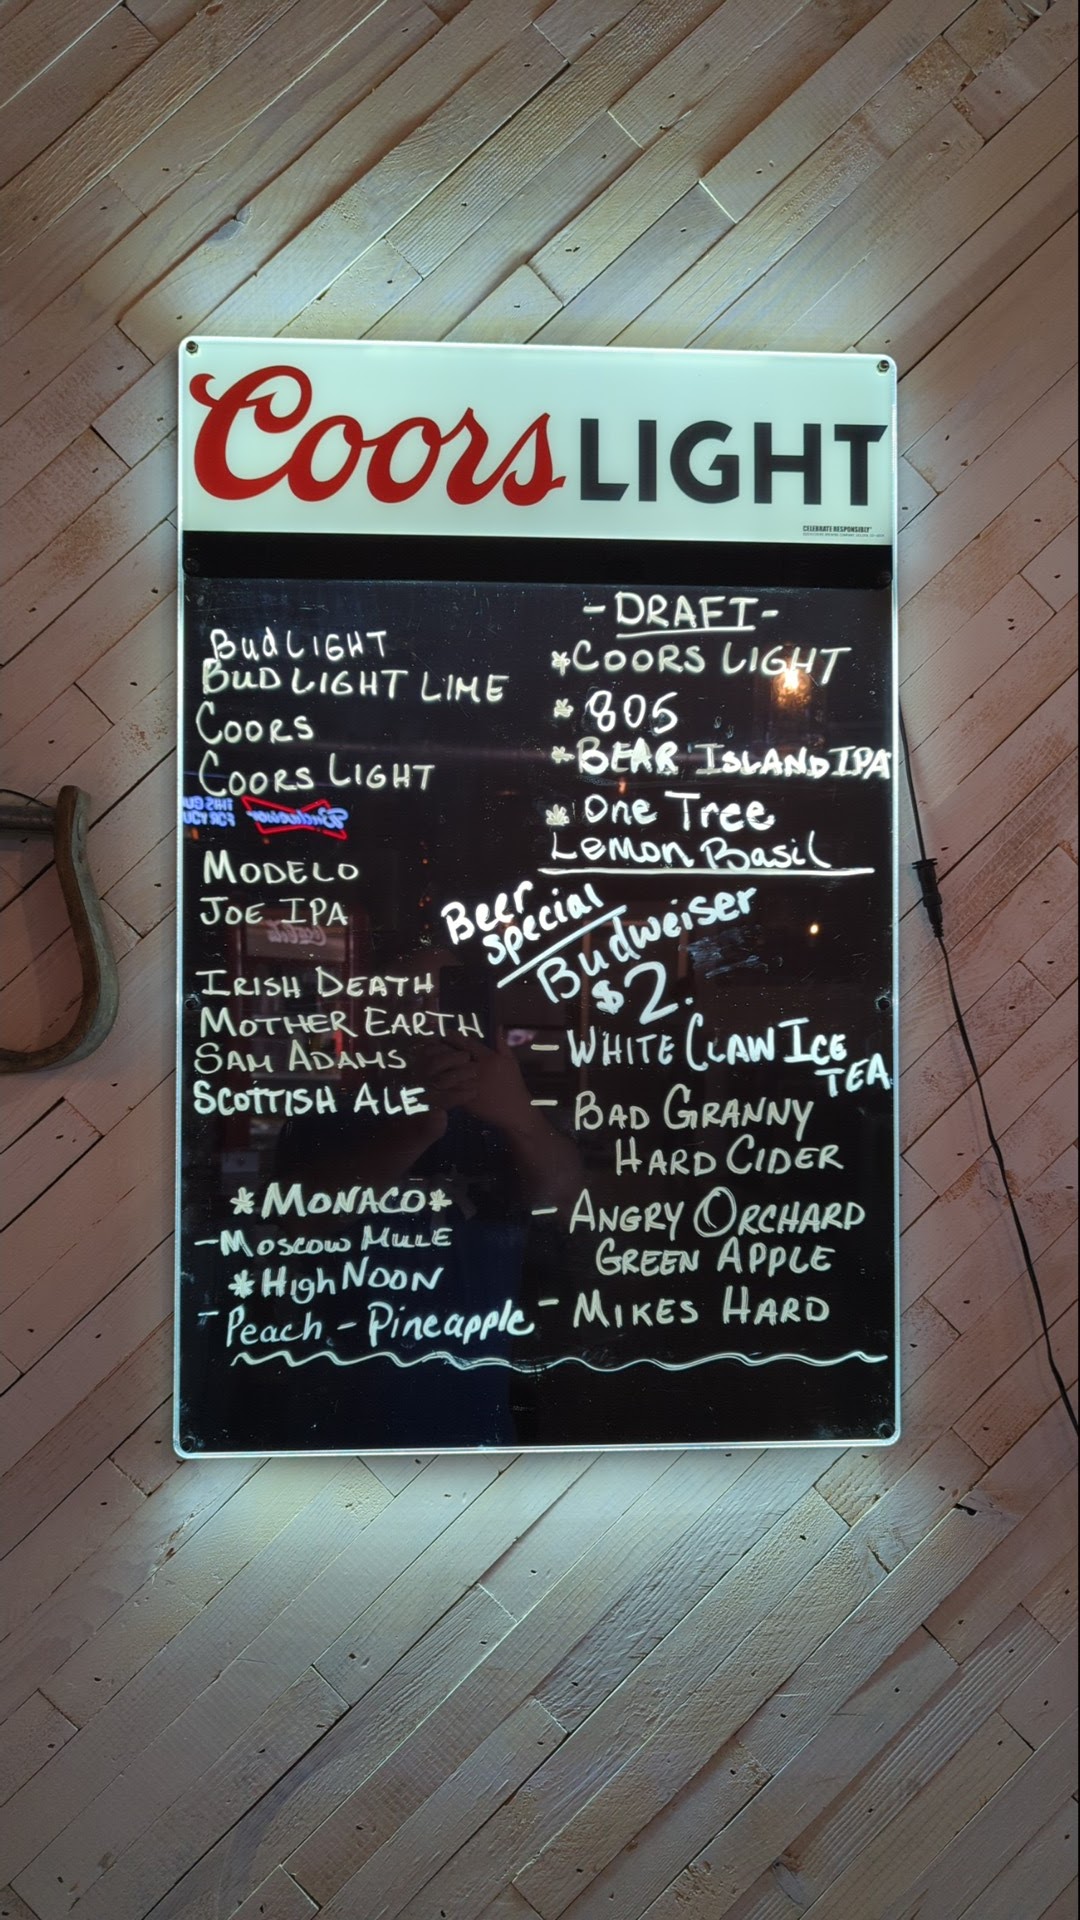 Coors LIGHT
CELEBRATE RESPONSIBLY
Bud LIGHT
BUD LIGHT LIME
COORS
COORS LIGHT
Budweiser
MODELO
JOE IPA
IRISH DEATH
MOTHER EARTH
SAM ADAMS
SCOTTISH ALE
*MONACO*
-MOSCOW MULE
*High NOON
- Peach - Pineapple
-DRAFT-
*COORS LIGHT
* 805
*BEAR ISLAND IPA
* One Tree
Lemon Basil
Beer
special
Budweiser
$2.
- WHITE CLAW ICE
TEA
- BAD GRANNY
HARD CIDER
- ANGRY ORCHARD
GREEN APPLE
- MIKES HARD